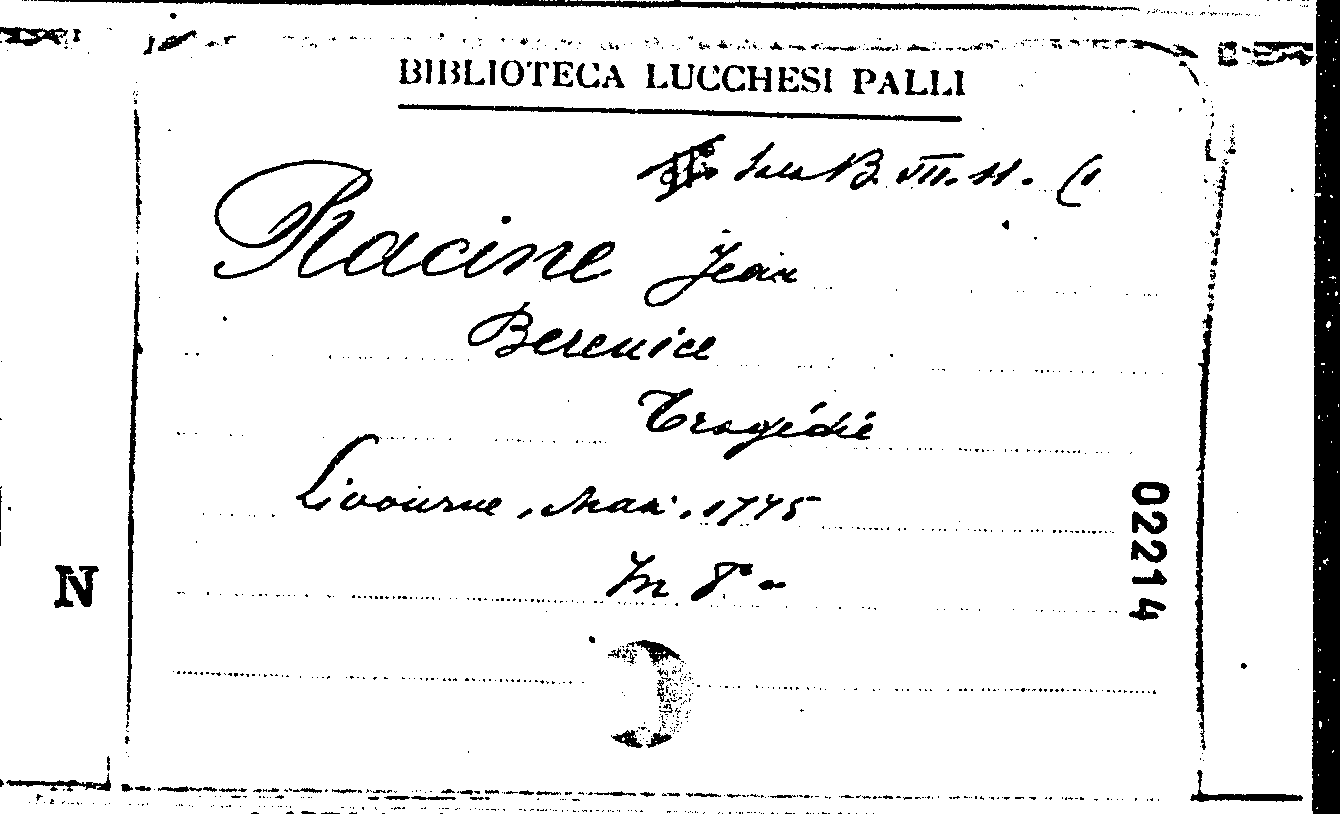 BIBLIOTECA LUCCHESI PALLI
Sala B. VII. 11. (1
Racine Jean
Berenice
Tragédie
Livourne, Mas., 1775
In 8° -
02214
N